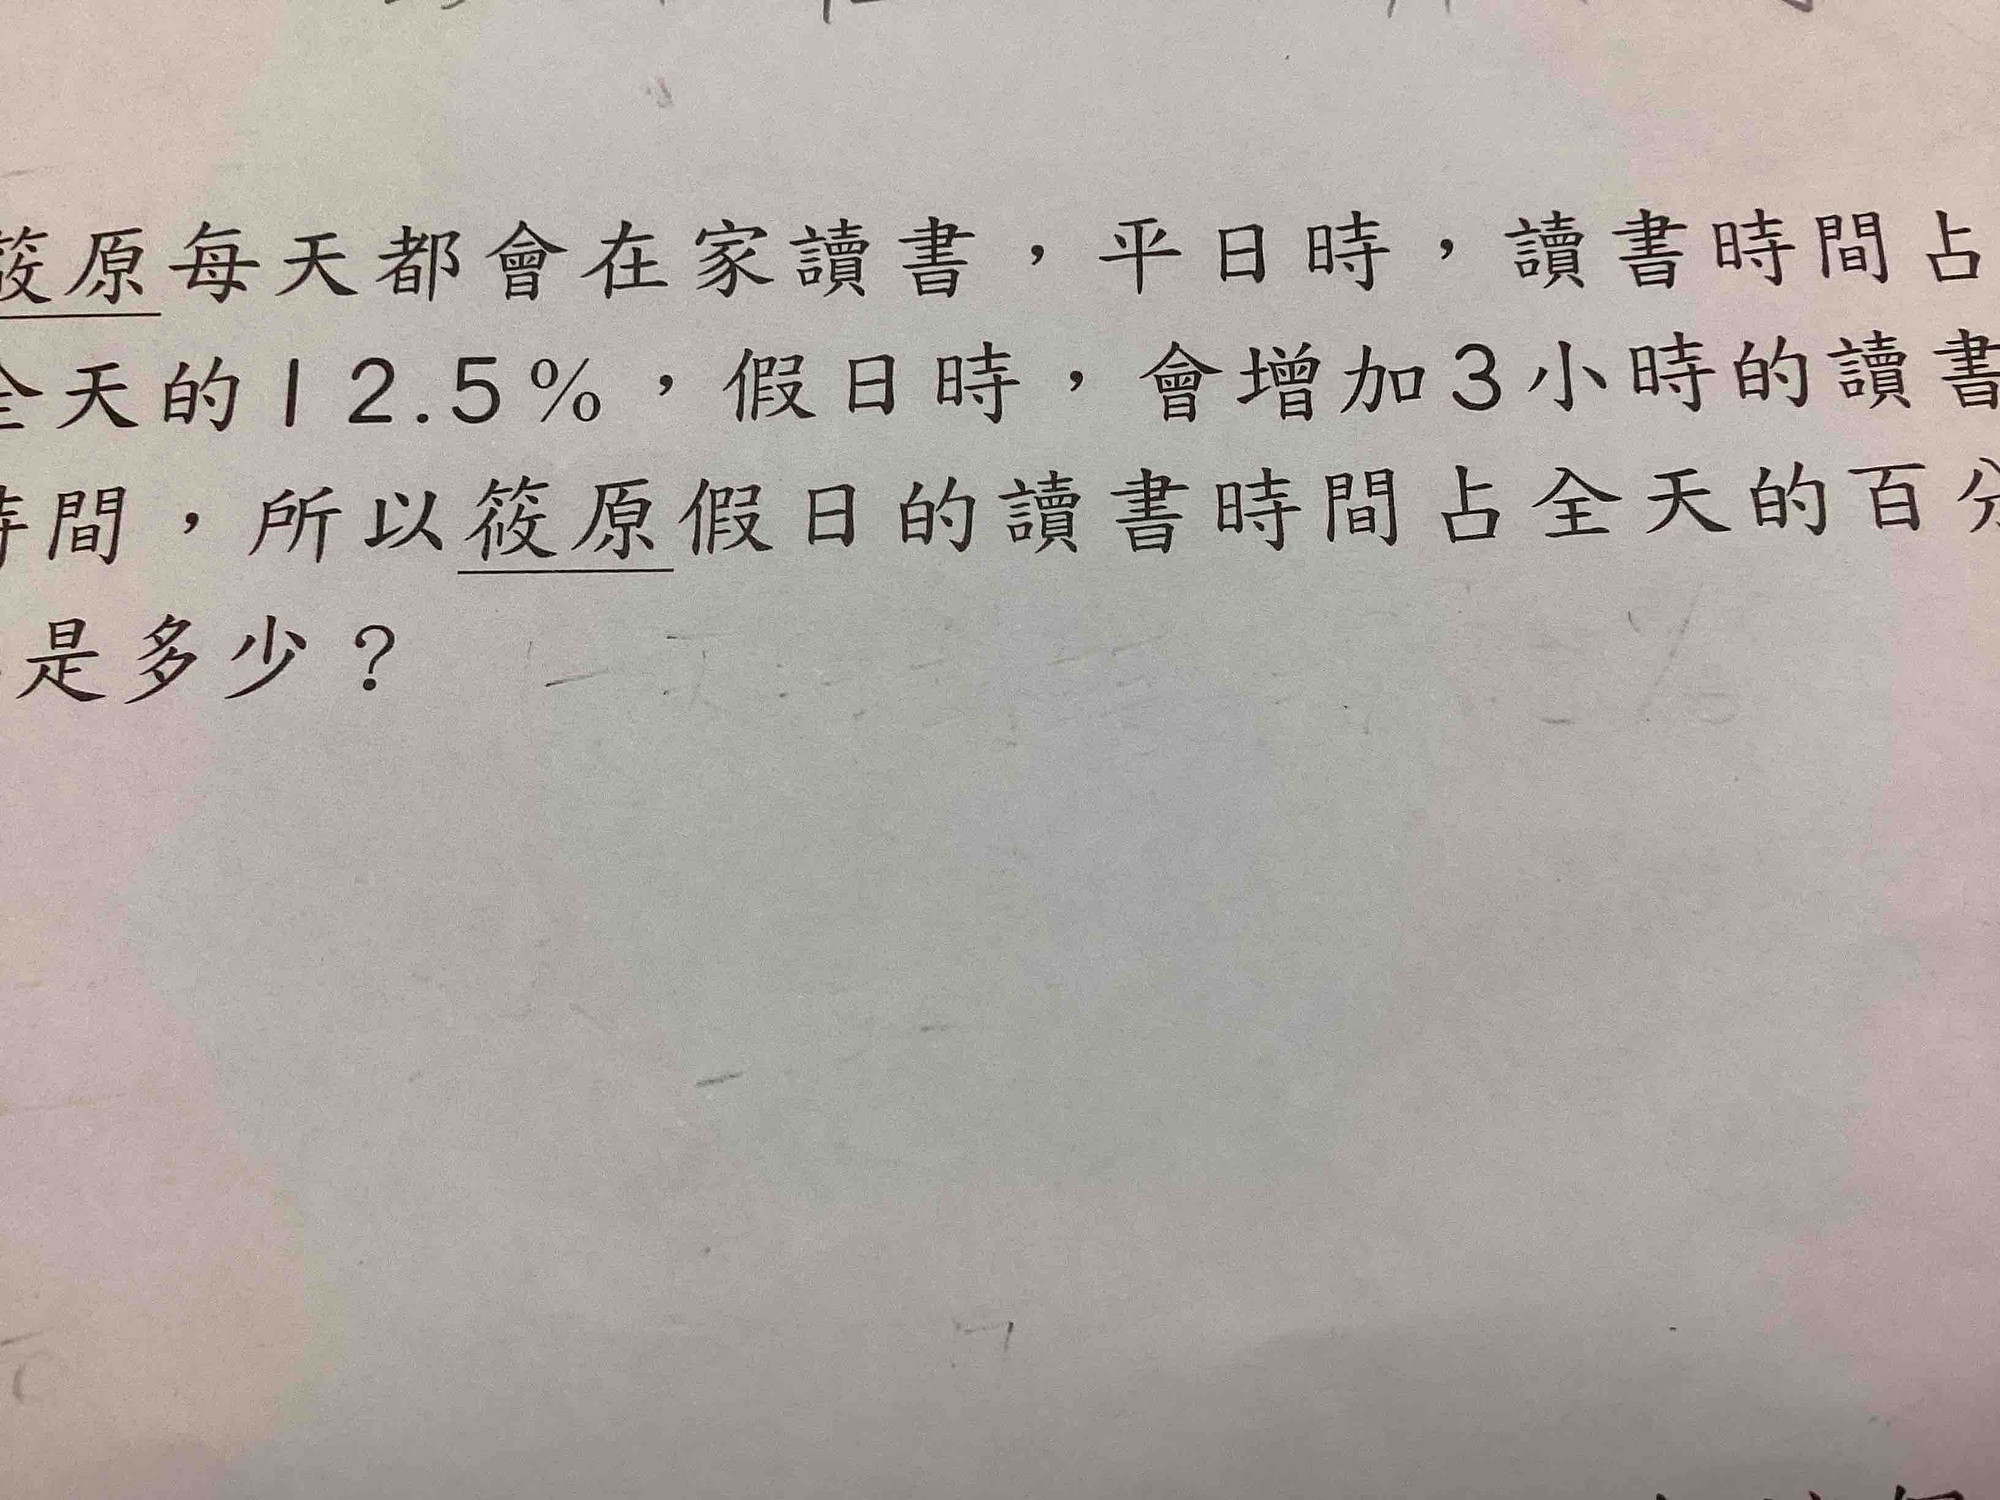 筱原每天都會在家讀書，平日時，讀書時間占
全天的12.5%，假日時，會增加3小時的讀書
時間，所以筱原假日的讀書時間占全天的百分
是多少？